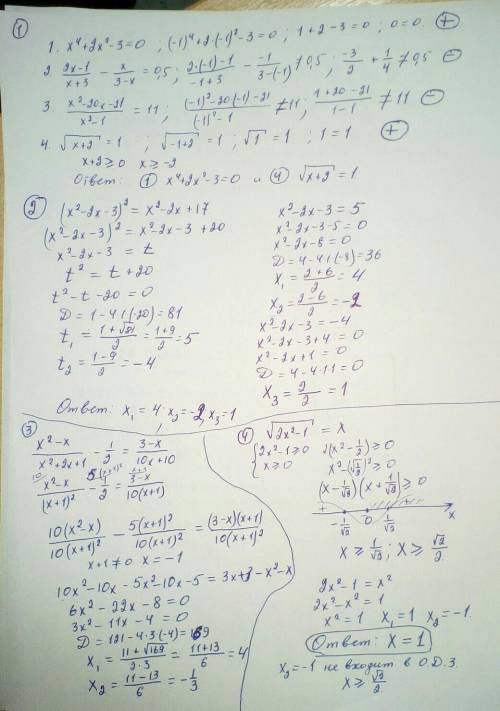 ①
1. x⁴+2x²-3=0 ; (-1)⁴+2·(-1)²-3=0 ; 1+2-3=0 ; 0=0. ⊕
2. (2x-1)/(x+3) - x/(3-x) = 0,5 ; (2·(-1)-1)/(-1+3) - (-1)/(3-(-1)) ≠ 0,5 ; -3/2 + 1/4 ≠ 0,5 ⊖
3. (x²-20x-21)/(x²-1) = 11 ; ((-1)²-20(-1)-21)/((-1)²-1) ≠ 11 ; (1+20-21)/(1-1) ≠ 11 ⊖
4. √(x+2) = 1 ; √(-1+2) = 1 ; √1 = 1 ; 1=1 ⊕
x+2≥0 x≥-2
Ответ: ① x⁴+2x²-3=0 и ④ √(x+2) = 1
②
(x²-2x-3)² = x²-2x+17
(x²-2x-3)² = x²-2x-3+20
x²-2x-3 = t
t² = t+20
t²-t-20=0
D = 1-4·1·(-20)=81
t₁ = (1+√81)/2 = (1+9)/2 = 5
t₂ = (1-9)/2 = -4
x²-2x-3 = 5
x²-2x-3-5 = 0
x²-2x-8 = 0
D = 4-4·1·(-8)=36
x₁ = (2+6)/2 = 4
x₂ = (2-6)/2 = -2
x²-2x-3 = -4
x²-2x-3+4 = 0
x²-2x+1 = 0
D = 4-4·1·1=0
x₃ = 2/2 = 1
Ответ: x₁ = 4 ; x₂ = -2 ; x₃ = 1
③
(x²-x)/(x²+2x+1) - 1/2 = (3-x)/(10x+10)
10/ (x²-x)/(x+1)² - 5(x+1)²/ 1/2 = x+1/ (3-x)/(10(x+1))
10(x²-x)/(10(x+1)²) - 5(x+1)²/(10(x+1)²) = (3-x)(x+1)/(10(x+1)²)
x+1≠0 x=-1
10x²-10x-5x²-10x-5 = 3x+3-x²-x
6x²-22x-8=0
3x²-11x-4=0
D = 121-4·3·(-4)=169
x₁ = (11+√169)/(2·3) = (11+13)/6 = 4
x₂ = (11-13)/6 = -1/3
④
√(2x²-1) = x
{2x²-1≥0 2(x²-1/2)≥0
x≥0 x²-(1/√2)²≥0
(x-1/√2)(x+1/√2)≥0
+ - +
-1/√2 0 1/√2 x
x≥1/√2 ; x≥√2/2
2x²-1 = x²
2x²-x² = 1
x² = 1 x₁=1 x₂=-1.
Ответ: x=1
x₂=-1 не входит в О.Д.З.
x≥√2/2